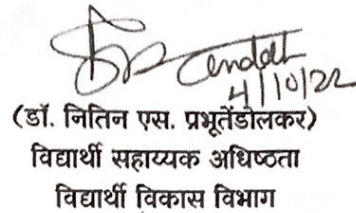 4/10/22
(डॉ. नितिन एस. प्रभूतेंडोलकर)
विद्यार्थी सहाय्यक अधिष्ठता
विद्यार्थी विकास विभाग